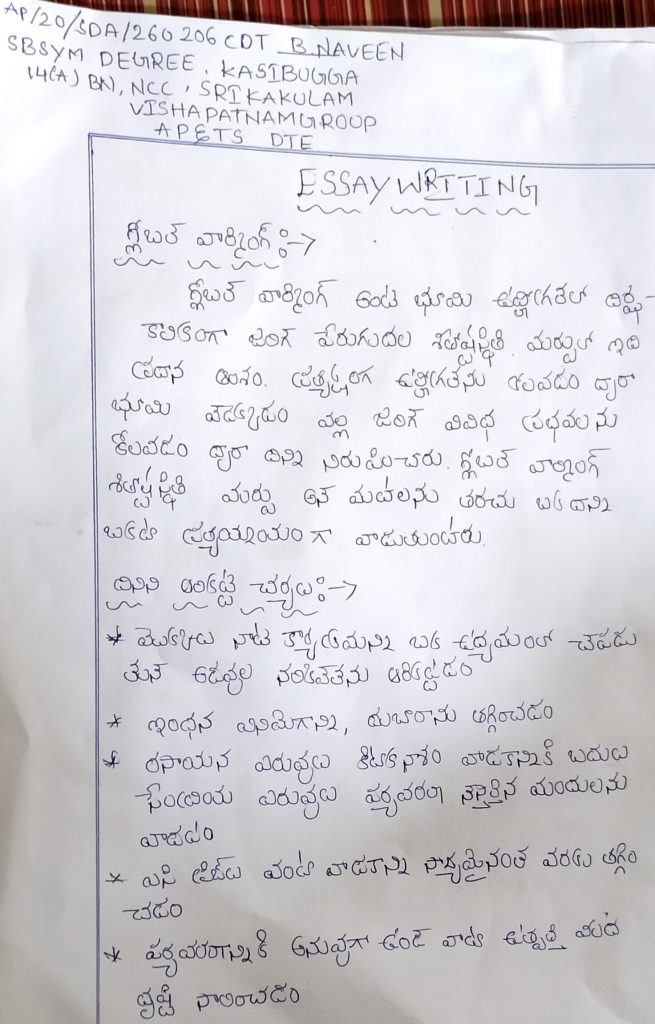 AP/20/SDA/260206 CDT B.NAVEEN
SBSYM DEGREE. KASIBUGGA
14(A) BN, NCC, SRIKAKULAM
VISHAPATNAMGROOP
AP&TS DTE
ESSAY WRITING
గ్లోబల్ వార్మింగ్ :->
గ్లోబల్ వార్మింగ్ అంటే భూమి ఉష్ణోగ్రతలో దీర్ఘ-
కాలికంగా జరిగే పెరుగుదల శీతోష్ణస్థితి మార్పులో ఇది
ప్రధాన అంశం. ప్రత్యక్షంగా ఉష్ణోగ్రతను కొలవడం ద్వారా
భూమి వేడెక్కడం వల్ల జరిగే వివిధ ప్రభావలను
కొలవడం ద్వారా దీన్ని నిరుపించారు. గ్లోబల్ వార్మింగ్
శీతోష్ణ స్థితి మార్పు అనే మాటలను తరచు ఒకదాన్ని
ఒకటి ప్రత్యయ్నాయం గా వాడుతుంటారు.
దీనిని అరికట్టే చర్యలు :->
* మొక్కలు నాటే కార్యక్రమన్ని ఒక ఉద్యమంలా చేపడు
తునే అడవుల నరికివేతను అరికట్టడం
* ఇంధన వినిమోగాన్ని, దుబారాను తగ్గించడం
* రసాయన ఎరువులు కీటకనాశం వాడకానికి బదులు
సేంద్రియ ఎరువులు పర్యవరణ నేస్తాలైన మందులను
వాడటం
* ఎసి ఫ్రిజ్‌లు వంటి వాడకాన్ని సాధ్యమైనంత వరకు తగ్గిం
చడం
* పర్యవరణానికి అనువుగా ఉండే వాటి ఉత్పత్తి మీద
దృష్టి సారించడం